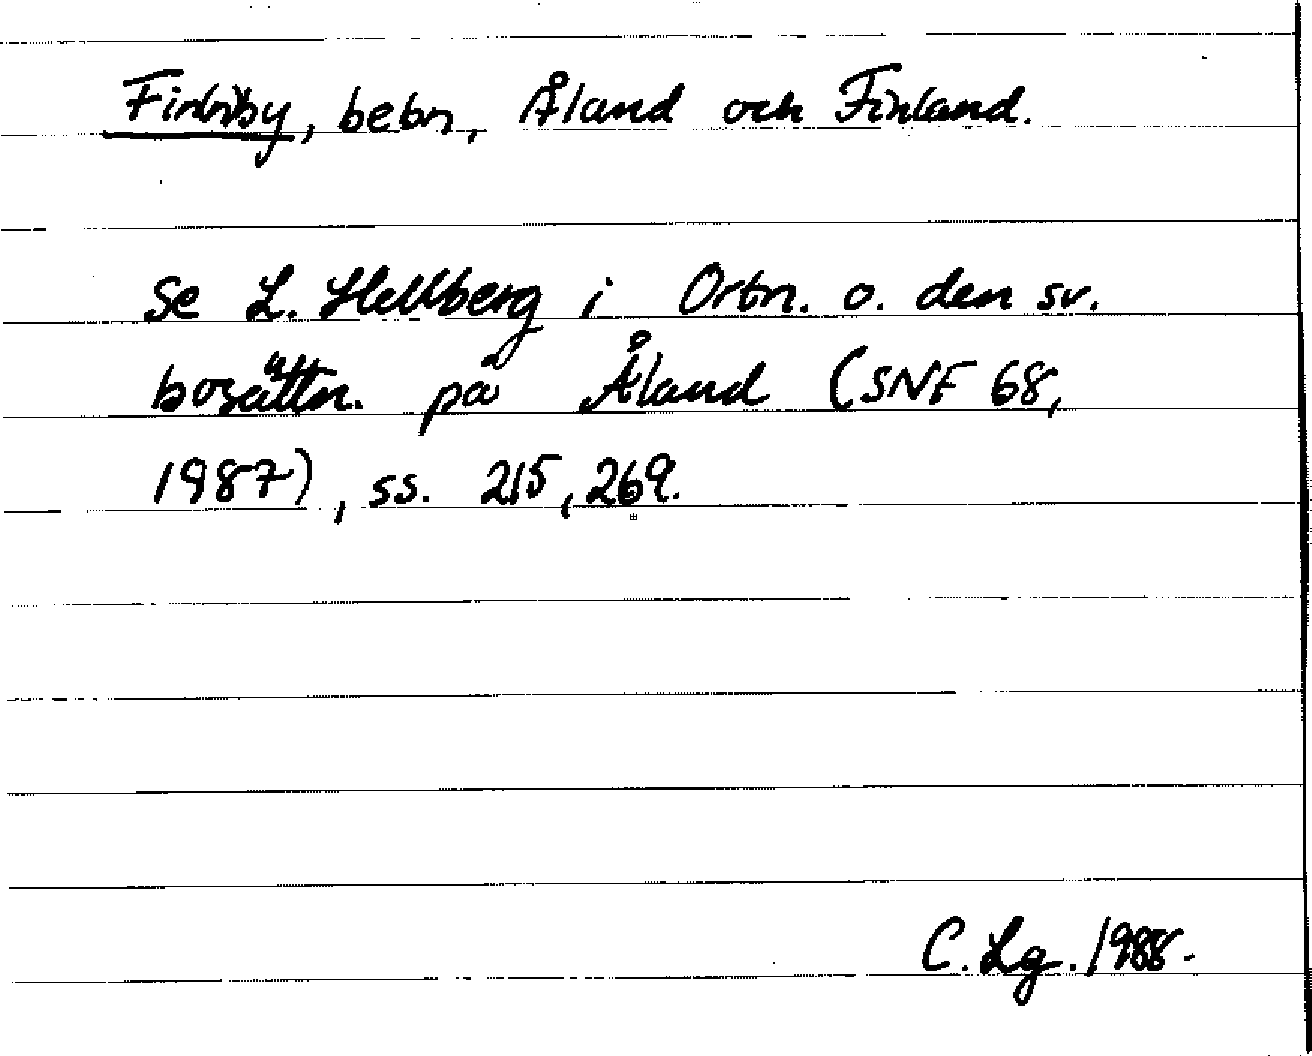 Finby, bebn, Åland och Finland.
Se L. Hellberg i Ortn. o. den sv.
bosättn. på Åland (SNF 68,
1987), ss. 215, 269.
C. Lg. 1988.